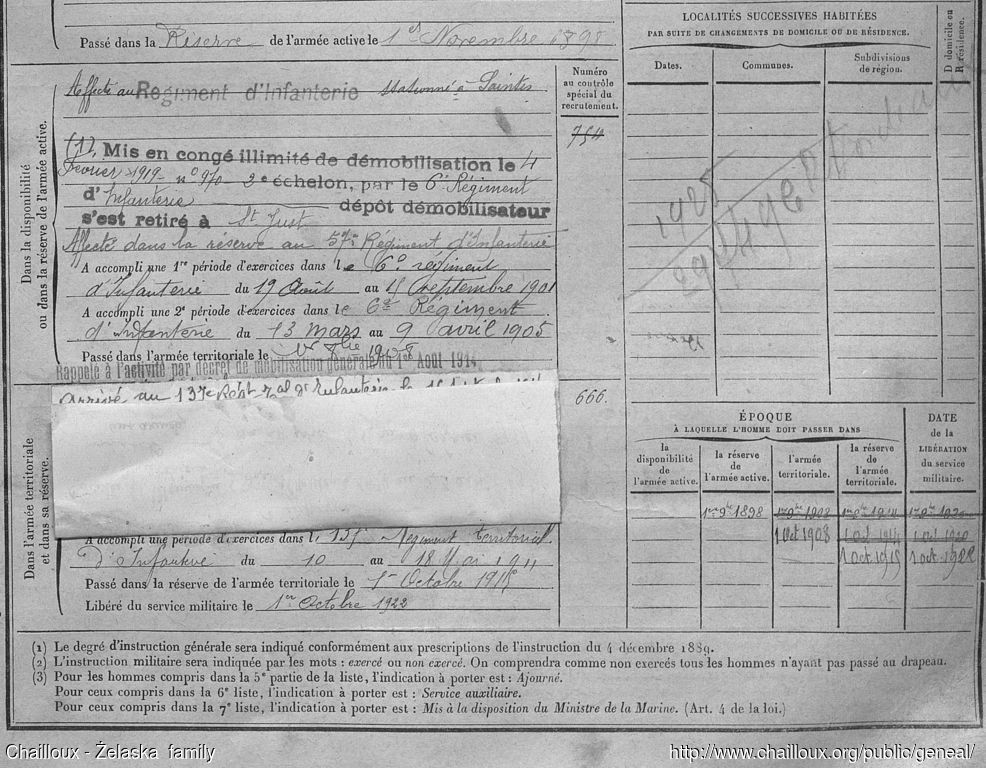 Passé dans la Réserve de l'armée active le 1er Novembre 1898
Dans la disponibilité
ou dans la réserve de l'armée active.
Affecté au Régiment d'Infanterie stationné à Saintes
(1). Mis en congé illimité de démobilisation le 4
Février 1919 n° 970 2e échelon, par le 6e Régiment
d'Infanterie dépôt démobilisateur
s'est retiré à St Just
Affecté dans la réserve au Régiment d'Infanterie
A accompli une 1re période d'exercices dans le 6e régiment
d'Infanterie du 19 Août au 15 septembre 1901
A accompli une 2e période d'exercices dans le 6e Régiment
d'Infanterie du 13 mars au 9 avril 1905
Passé dans l'armée territoriale le 1908
Rappelé à l'activité par décret de mobilisation générale du 1er Août 1914
Numéro
au contrôle
spécial du
recrutement.
754
666.
Dans l'armée territoriale
et dans sa réserve.
Arrivé au 137e Régt d'Infanterie le
A accompli une période d'exercices dans le Régiment territorial
d'Infanterie du 10 au 18 Mai 1911
Passé dans la réserve de l'armée territoriale le 1er Octobre 1915
Libéré du service militaire le 1er Octobre 1922
LOCALITÉS SUCCESSIVES HABITÉES
PAR SUITE DE CHANGEMENTS DE DOMICILE OU DE RÉSIDENCE.
Dates.
Communes.
Subdivisions
de région.
D domicile ou
R résidence.
1925
ÉPOQUE
À LAQUELLE L'HOMME DOIT PASSER DANS
la
disponibilité
de
l'armée active.
la réserve
de
l'armée active.
l'armée
territoriale.
la réserve
de
l'armée
territoriale.
DATE
de la
LIBÉRATION
du service
militaire.
1er 9bre 1898 1er 9bre 1908 1er 9bre 1914 1er 9bre 1920
1 Oct 1908 1 oct 1914 1 oct 1920
1 oct 1915 1 oct 1922
(1) Le degré d'instruction générale sera indiqué conformément aux prescriptions de l'instruction du 4 décembre 1889.
(2) L'instruction militaire sera indiquée par les mots : exercé ou non exercé. On comprendra comme non exercés tous les hommes n'ayant pas passé au drapeau.
(3) Pour les hommes compris dans la 5e partie de la liste, l'indication à porter est : Ajourné.
Pour ceux compris dans la 6e liste, l'indication à porter est : Service auxiliaire.
Pour ceux compris dans la 7e liste, l'indication à porter est : Mis à la disposition du Ministre de la Marine. (Art. 4 de la loi.)
Chailloux - Żelaska family
http://www.chailloux.org/public/geneal/